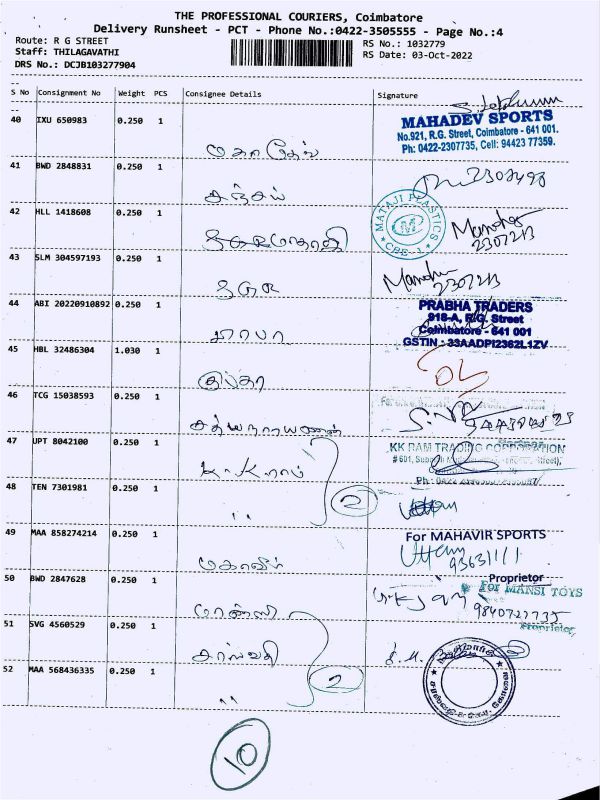 THE PROFESSIONAL COURIERS, Coimbatore
Delivery Runsheet - PCT - Phone No.:0422-3505555 - Page No.:4
Route: R G STREET
RS No.: 1032779
Staff: THILAGAVATHI
RS Date: 03-Oct-2022
DRS No.: DCJB103277904
S No Consignment No Weight PCS Consignee Details Signature
40 IXU 650983 0.250 1
மகாதேவ்
MAHADEV SPORTS
No.921, R.G. Street, Coimbatore - 641 001.
Ph: 0422-2307735, Cell: 94423 77359.
41 BWD 2848831 0.250 1
சஞ்சய்
42 HLL 1418608 0.250 1
MATAJI PLASTICS
CBE-1
Manohar
2307213
43 SLM 304597193 0.250 1
Manohar
2307213
44 ABI 20220910892 0.250 1
பிரபா
PRABHA TRADERS
918-A, R.G. Street
Coimbatore - 641 001
GSTIN : 33AADPI2362L1ZV
45 HBL 32486304 1.030 1
குப்தா
46 TCG 15038593 0.250 1
சத்யநாராயணன்
47 UPT 8042100 0.250 1
K.K ராம்
KK RAM TRADING CORPORATION
48 TEN 7301981 0.250 1
"
2
49 MAA 858274214 0.250 1
மகாவீர்
For MAHAVIR SPORTS
Uttam
Proprietor
50 BWD 2847628 0.250 1
மான்சி
For MANSI TOYS
Proprietor
51 SVG 4560529 0.250 1
சரஸ்வதி
52 MAA 568436335 0.250 1
"
2
10